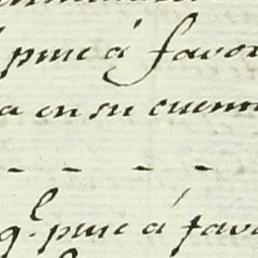 puse á favor
a en su cuenta
- - - -
q.l puse á favo